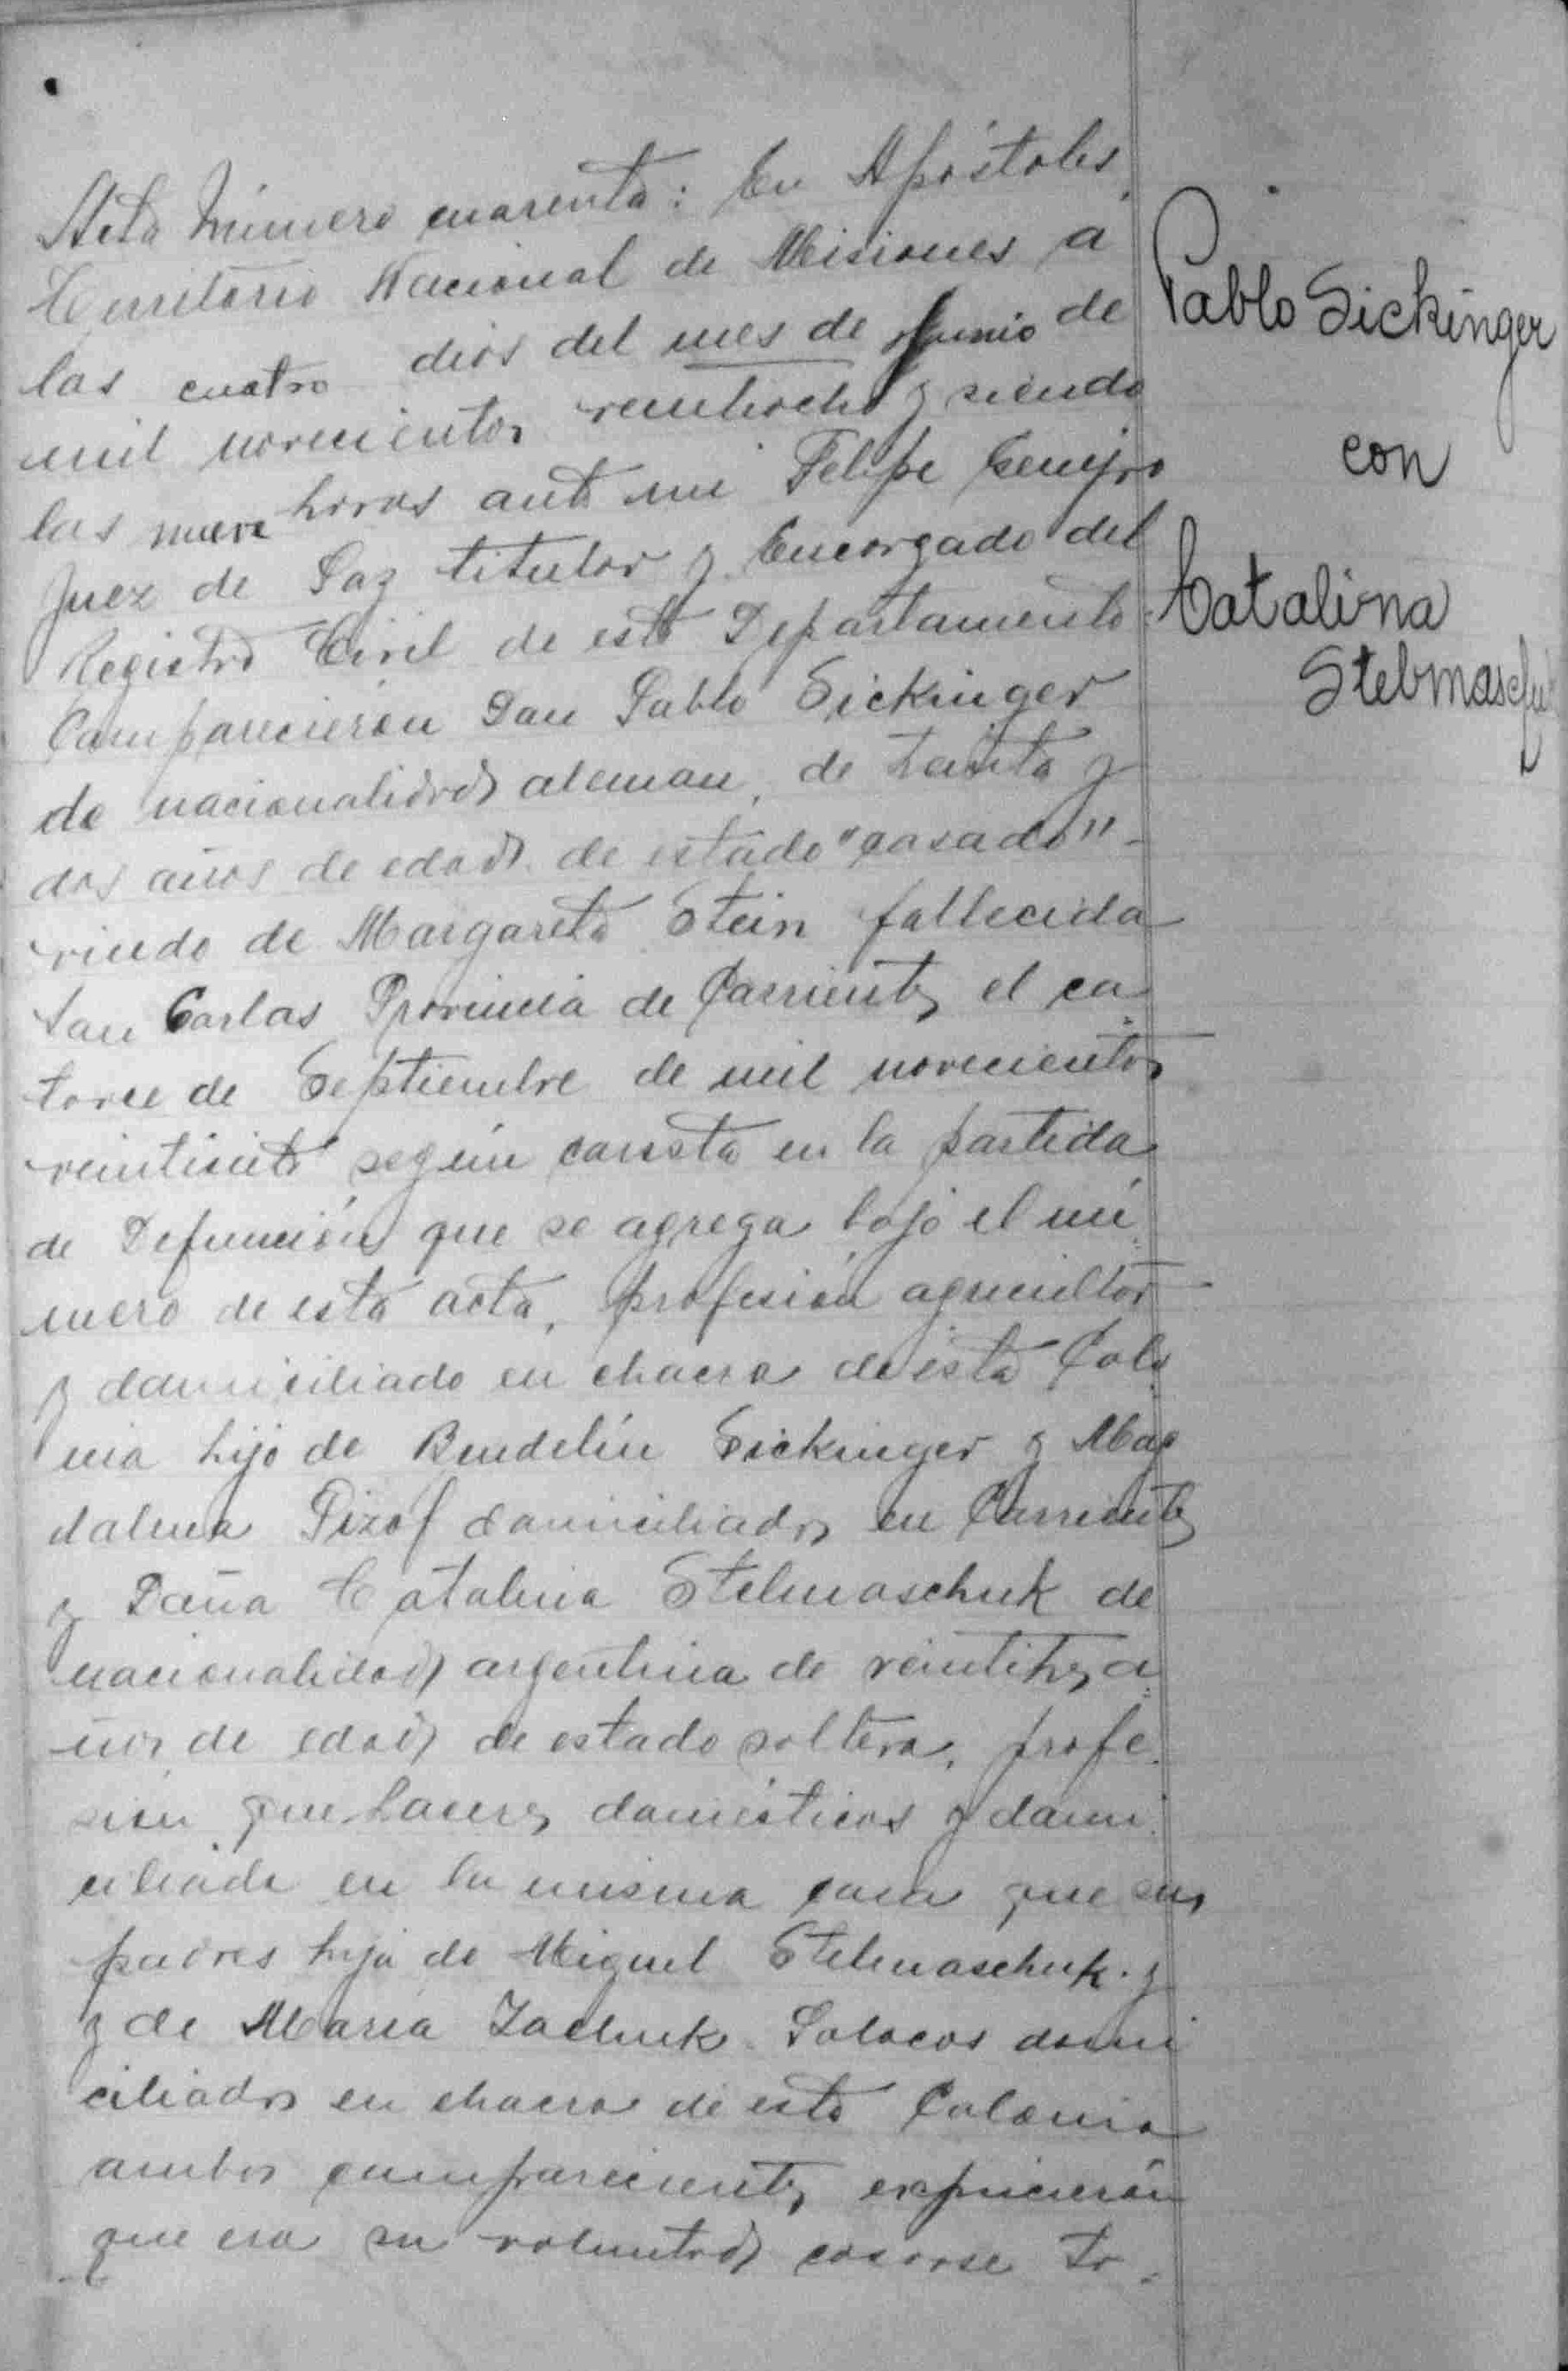 Acta Número cuarenta: En Apóstoles
Territorio Nacional de Misiones á
las cuatro dias del mes de Junio de
mil novecientos veintiocho y siendo
las nueve horas ante mi Felipe
Juez de Paz titular y Encargado del
Registro Civil de este Departamento
Comparecieron Don Pablo Sickinger
de nacionalidad aleman, de treinta y
dos años de edad de estado "casado" -
viudo de Margareta Stein fallecida
San Carlos Provincia de Corrientes el ca
torce de Septiembre de mil novecientos
veintisiete según consta en la partida
de Defunción que se agrega bajo el nú
mero de esta acta, profesión agricultor
y domiciliado en chacra de esta Colo
nia hijo de Bendelín Sickinger y Mag
dalena domiciliados en Corrientes
y Doña Catalina Stelmaschuk de
nacionalidad argentina de veintitres a
ños de edad de estado soltera, profe
sión quehaceres domésticos y domi
ciliada en la misma casa que sus
padres hija de Miguel Stelmaschuk y
y de María Zachuk Polacos domi
ciliados en chacra de esta Colonia
ambos comparecientes expusieron
que era su voluntad casarse to
Pablo Sickinger
con
Catalina